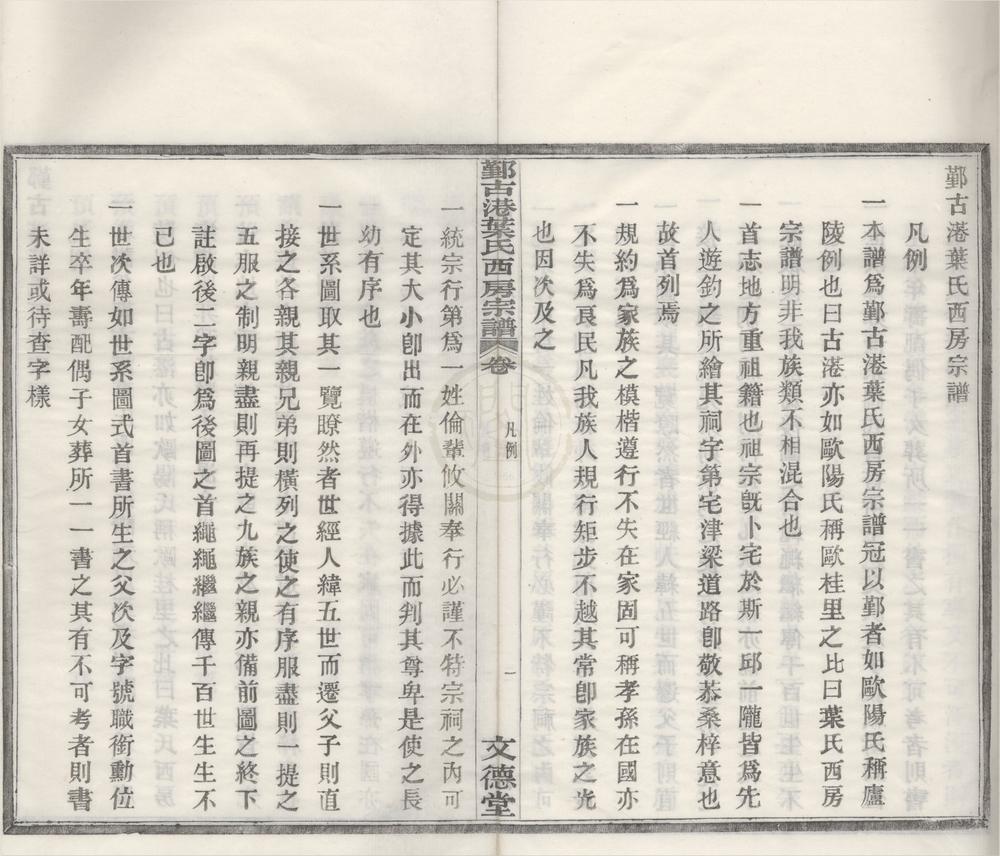 鄞古港葉氏西房宗譜
凡例
一本譜爲鄞古港葉氏西房宗譜冠以鄞者如歐陽氏稱廬
陵例也曰古港亦如歐陽氏稱歐桂里之比曰葉氏西房
宗譜明非我族類不相混合也
一首志地方重祖籍也祖宗旣卜宅於斯一邱一隴皆爲先
人遊釣之所繪其祠宇第宅津梁道路卽敬恭桑梓意也
故首列焉
一規約爲家族之模楷遵行不失在家固可稱孝孫在國亦
不失爲良民凡我族人規行矩步不越其常卽家族之光
也因次及之
鄞古港葉氏西房宗譜 卷 凡例 一 文德堂
一統宗行第爲一姓倫輩攸關奉行必謹不特宗祠之內可
定其大小卽出而在外亦得據此而判其尊卑是使之長
幼有序也
一世系圖取其一覽瞭然者世經人緯五世而遷父子則直
接之各親其親兄弟則橫列之使之有序服盡則一提之
五服之制明親盡則再提之九族之親亦備前圖之終下
註啟後二字卽爲後圖之首繩繩繼繼傳千百世生生不
已也
一世次傳如世系圖式首書所生之父次及字號職銜勳位
生卒年壽配偶子女葬所一一書之其有不可考者則書
未詳或待查字樣